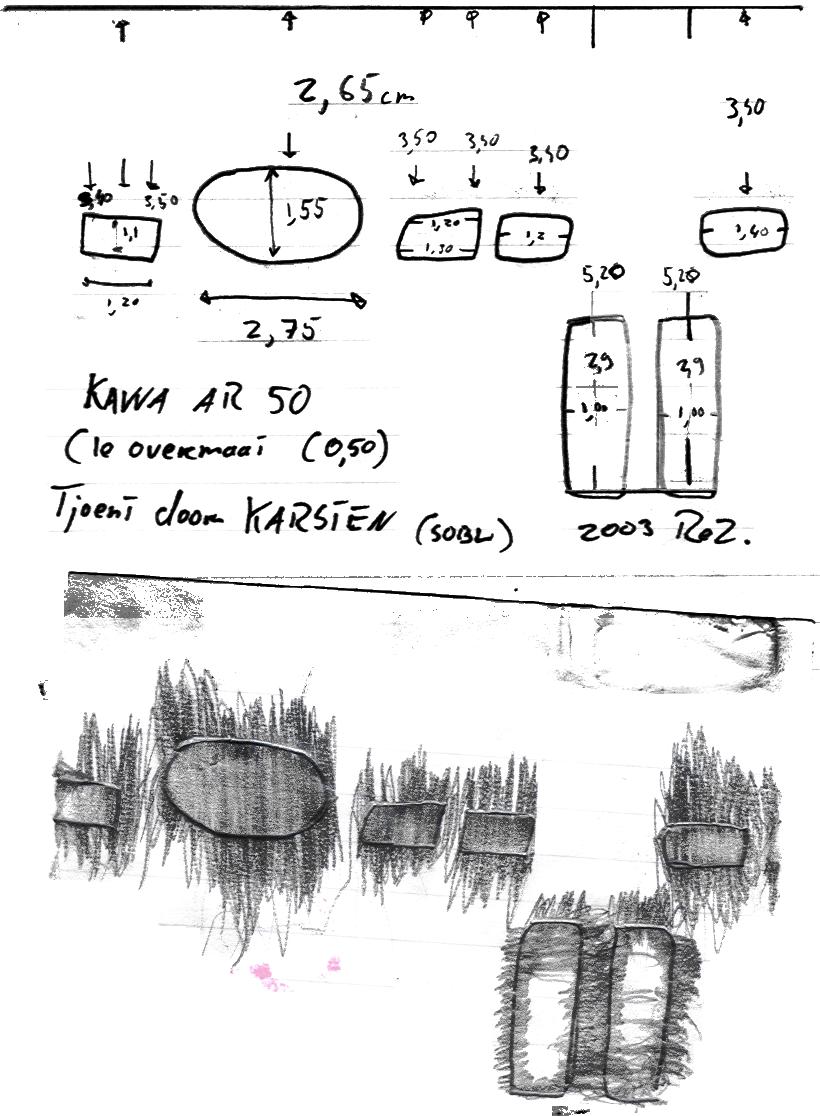 2,65cm
3,50 3,50 3,50 3,50
3,50 3,50
1,1 1,55 1,20 1,30 1,2 1,40
1,20
2,75
5,20 5,20
2,9 2,9
1,00 1,00
KAWA AR 50
(1e overmaat (0,50)
Tjoent door KARSTEN (SOBW) 2003 ReZ.